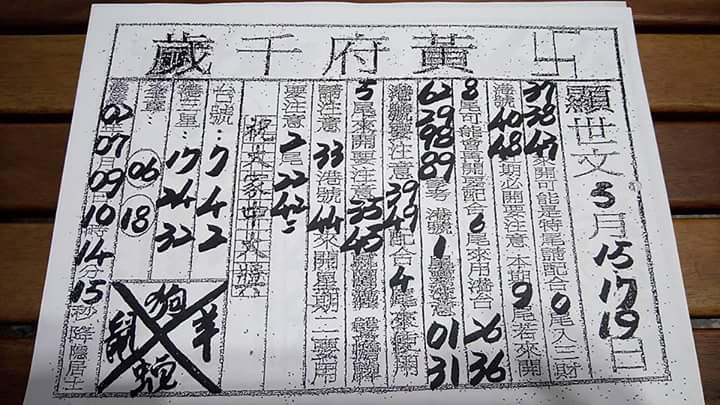 卍黃府千歲
顯世文5月15.17.19日
37 38 47來開可能是特尾請配合0尾入三財
港號40 48期必開要注意 本期9尾若來開
8尾可能會再開要配合6尾來用港台26 36
62 29 98 89參考 港號1 注意01 31
港號要注意39 49配合4尾來使用
5尾來開要注意35 45
請注意33港號44來開星期二要用
要注意2尾22 42
祝大家中大獎
台號:7 4 2
港三星:17 24 32
06 18
02年07月09日10時14分15秒降隱居士
狗
鼠 羊